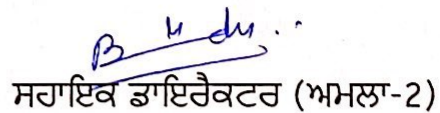 ਸਹਾਇਕ ਡਾਇਰੈਕਟਰ (ਅਮਲਾ-2)